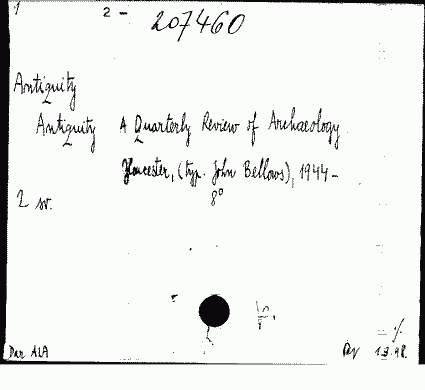 1
2 - 207460
Antiquity
Antiquity A Quarterly Review of Archaeology
Gloucester, (typ. John Bellows), 1944-
8°
2 sv.
Dar ALA